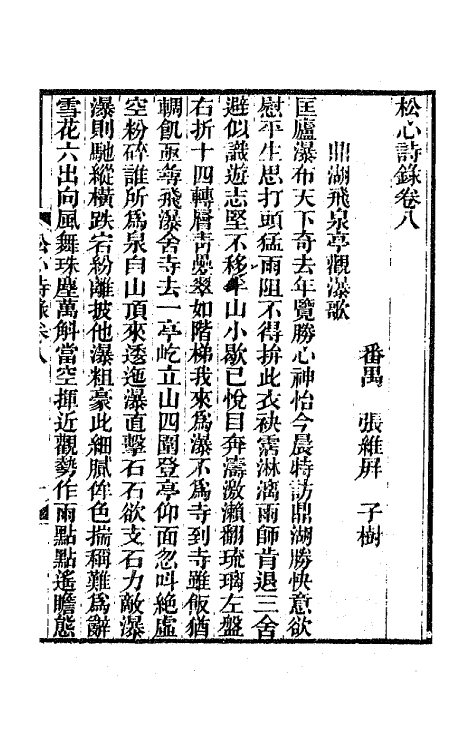 松心詩錄卷八
番禺　張維屛　子樹
鼎湖飛泉亭觀瀑歌
匡廬瀑布天下奇去年覽勝心神怡今晨特訪鼎湖勝快意欲
慰平生思打頭猛雨阻不得拚此衣袂霑淋漓雨師肯退三舍
避似識遊志堅不移半山小歇已悅目奔濤激瀨翻琉璃左盤
右折十四轉層靑疊翠如階梯我來爲瀑不爲寺到寺雖飯猶
輖飢亟尋飛瀑舍寺去一亭屹立山四圍登亭仰面忽叫絕虛
空粉碎誰所爲泉自山頂來逶迤瀑直擊石石欲支石力敵瀑
瀑則馳縱橫跌宕紛離披他瀑粗豪此細膩侔色揣稱難爲辭
雪花六出向風舞珠塵萬斛當空揮近觀勢作雨點點遙瞻態
松心詩錄卷八
一